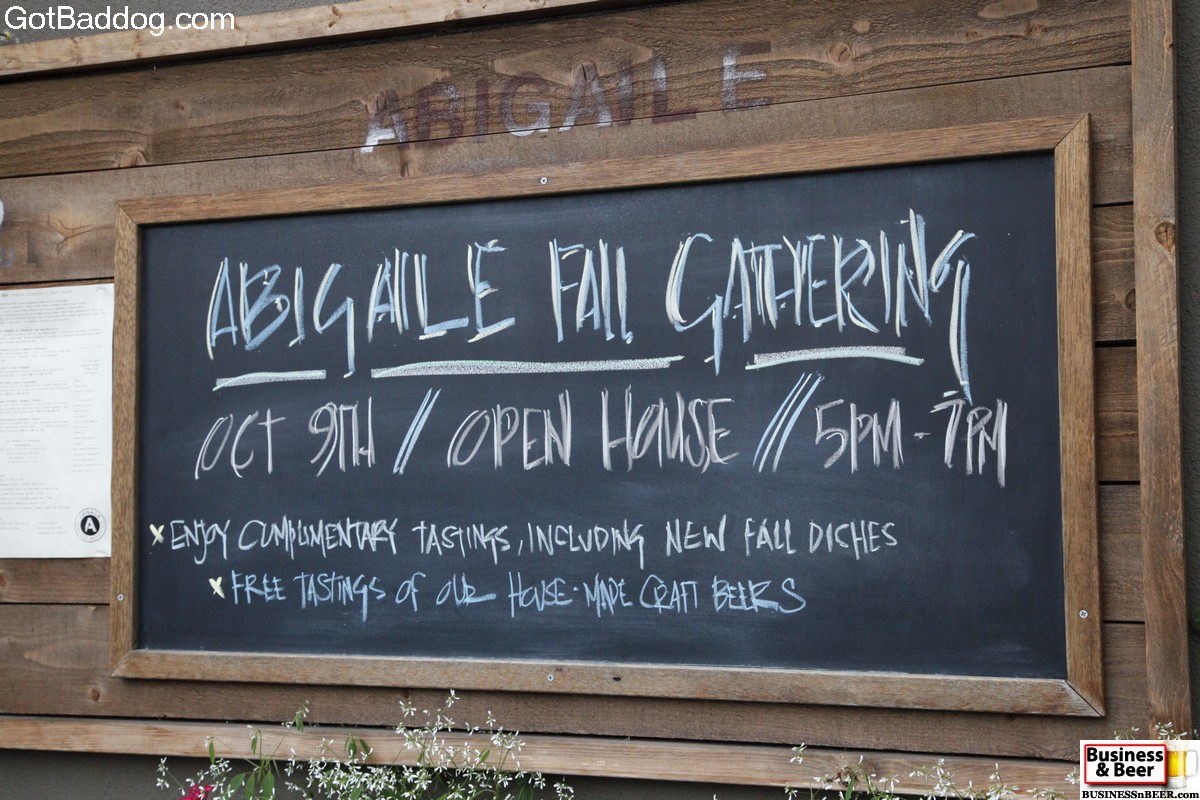 GotBaddog.com
ABIGAILE
ABIGAILE FALL GATHERING
OCT 9TH / OPEN HOUSE // 5PM - 7PM
x ENJOY CUMPLIMENTARY TASTINGS, INCLUDING NEW FALL DICHES
x FREE TASTINGS OF OUR HOUSE-MADE CRAFT BEERS
A
Business
& Beer
BUSINESSnBEER.com